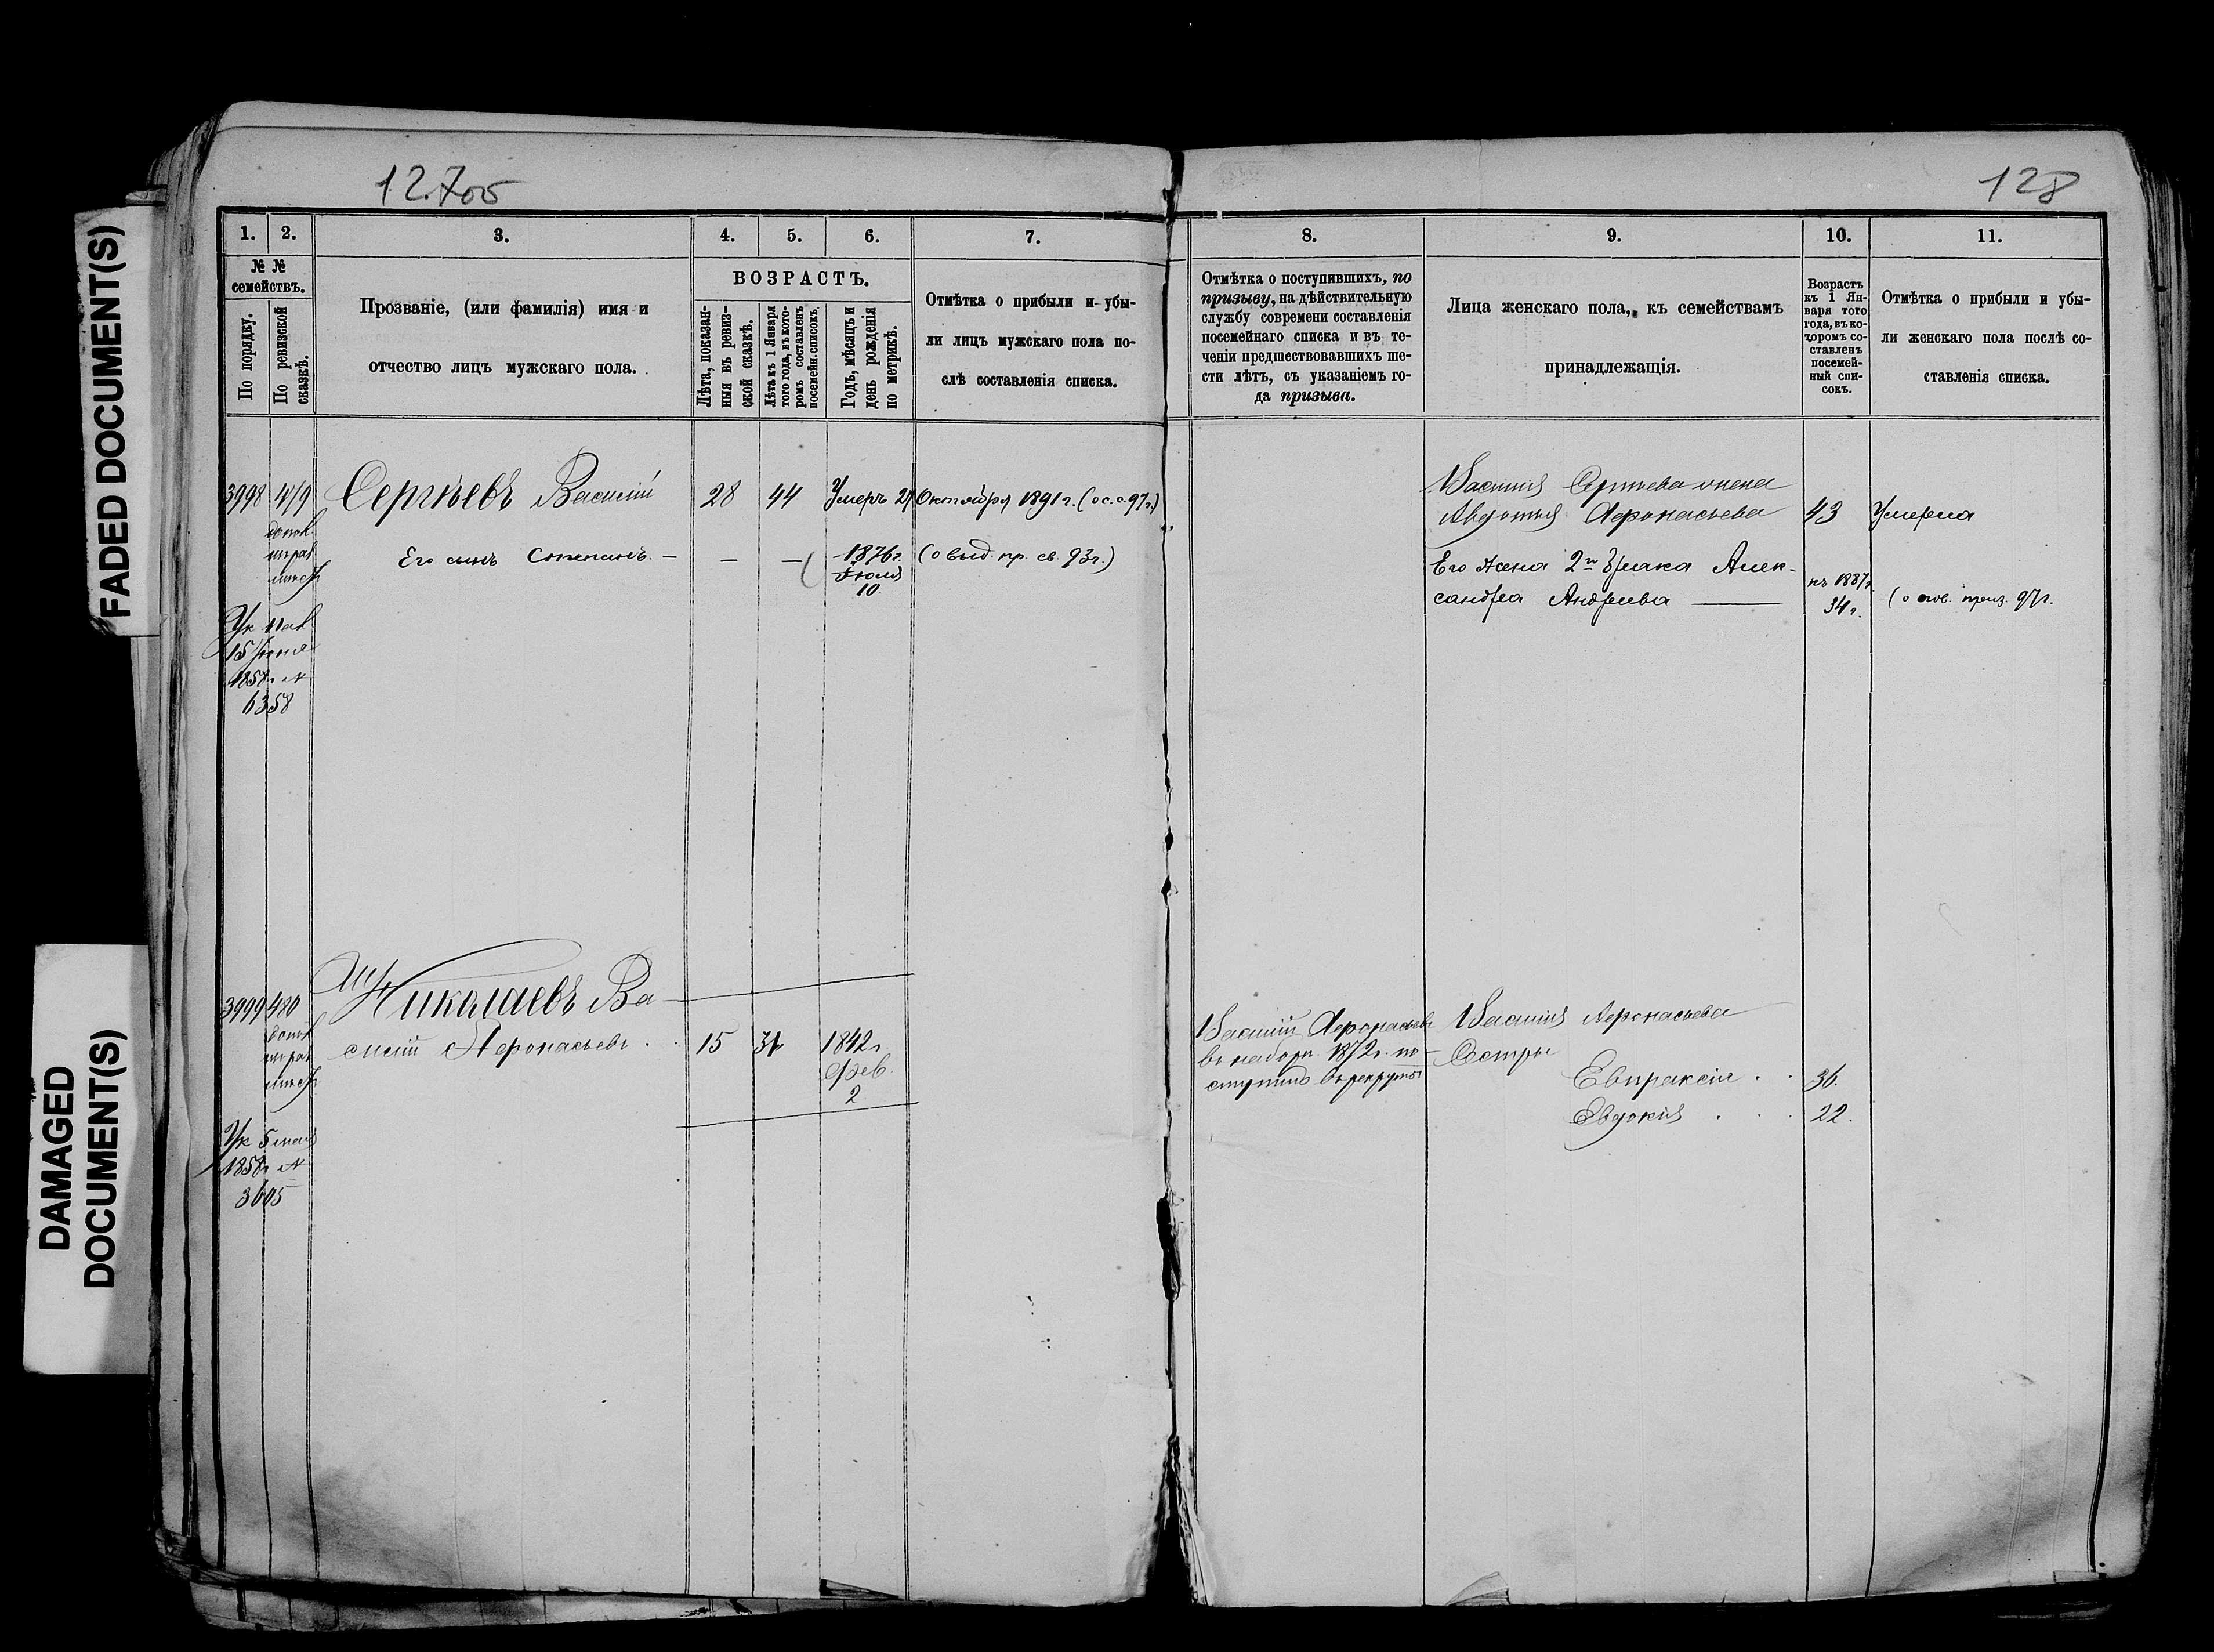 12.705
128
FADED DOCUMENT(S)
DAMAGED
DOCUMENT(S)
1.
2.
3.
4.
5.
6.
7.
№ №
семействъ.
По порядку.
По ревизской
сказкѣ.
Прозваніе, (или фамилія) имя и
отчество лицъ мужскаго пола.
ВОЗРАСТЪ.
Лѣта, показан-
ныя въ ревиз-
ской сказкѣ.
Лѣта къ 1 Января
того года, въ кото-
ромъ составленъ
посемейн. списокъ.
Годъ, мѣсяцъ и
день рожденія
по метрикѣ.
Отмѣтка о прибыли и убы-
ли лицъ мужскаго пола по-
слѣ составленія списка.
3998
479
Сергѣевъ Василій
28
44
Умеръ 27 Октября 1891 г. (ос. с. 97 г.)
Его сынъ Степанъ. —
—
—
1876 г.
Іюля
10
(о выд. пр. св. 93 г.)
Ук
15 Іюня
1858 г. №
6358
3999
480
Николаевъ Ва-
силій Афонасьевъ . .
15
31
1842 г.
Фев.
2
Ук 5 мая
1858 г. №
3605
8.
9.
10.
11.
Отмѣтка о поступившихъ, по
призыву, на дѣйствительную
службу современи составленія
посемейнаго списка и въ те-
ченіи предшествовавшихъ ше-
сти лѣтъ, съ указаніемъ го-
да призыва.
Лица женскаго пола, къ семействамъ
принадлежащія.
Возрастъ
къ 1 Ян-
варя того
года, въ ко-
торомъ со-
ставленъ
посемей-
ный спи-
сокъ.
Отмѣтка о прибыли и убы-
ли женскаго пола послѣ со-
ставленія списка.
Василія Сергѣева жена
Авдотья Афонасьева
43
Умерла
Его жена 2го брака Алек-
сандра Андреева —
къ 1887 г.
34 г.
97 г.
Василій Афонасьевъ
въ наборъ 1872 г. по-
ступилъ въ рекруты
Василія Афонасьева
Сестры
Евпраксія . .
36.
Евдокія . . .
22.